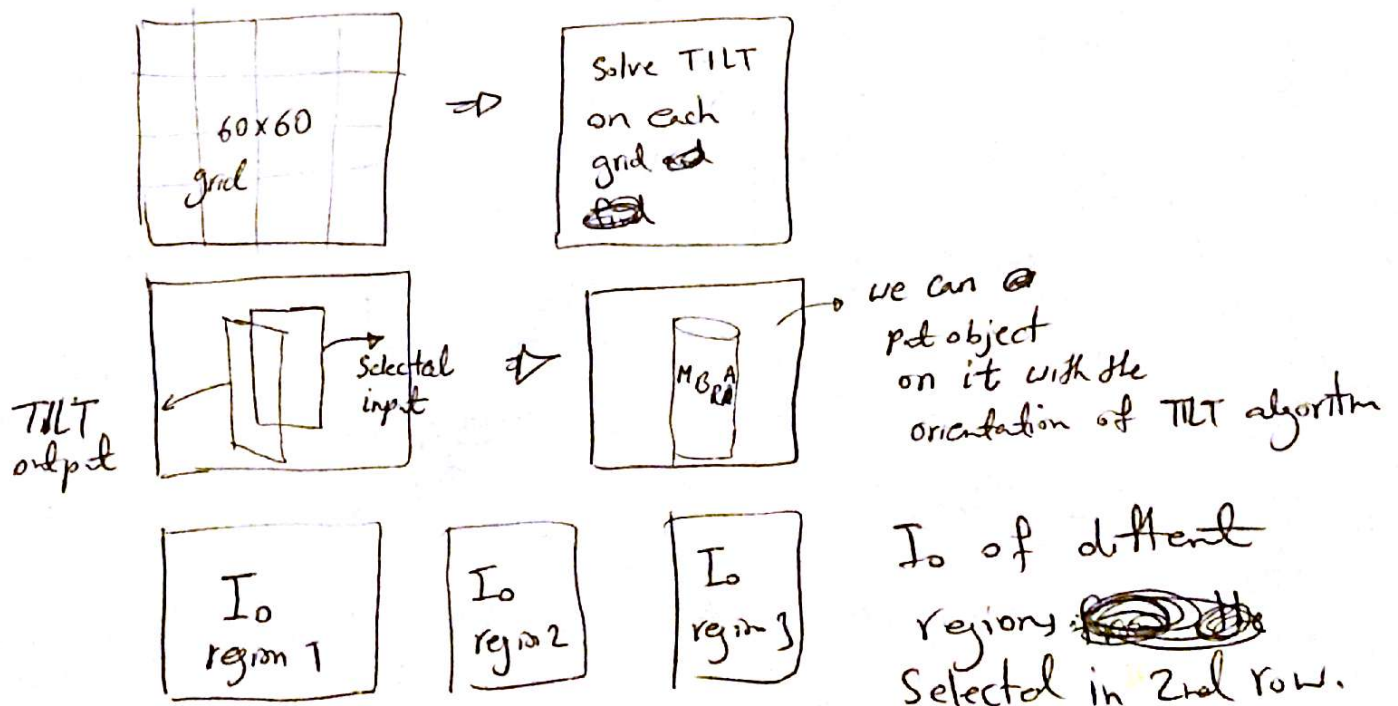 60×60
grid
Solve TILT
on each
grid
Selectal
input
TILT
output
MBRAA
we can
put object
on it with the
orientation of TILT algorithm
I₀
region 1
I₀
region 2
I₀
region 3
I₀ of diffrent
regions
Selected in 2nd row.